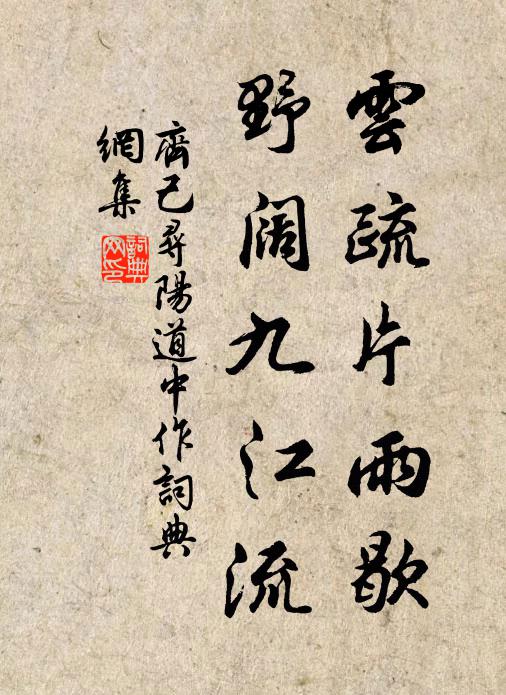 雲疏片雨歇
野阔九江流
齊己尋陽道中作詞典
網集
詞典
网印